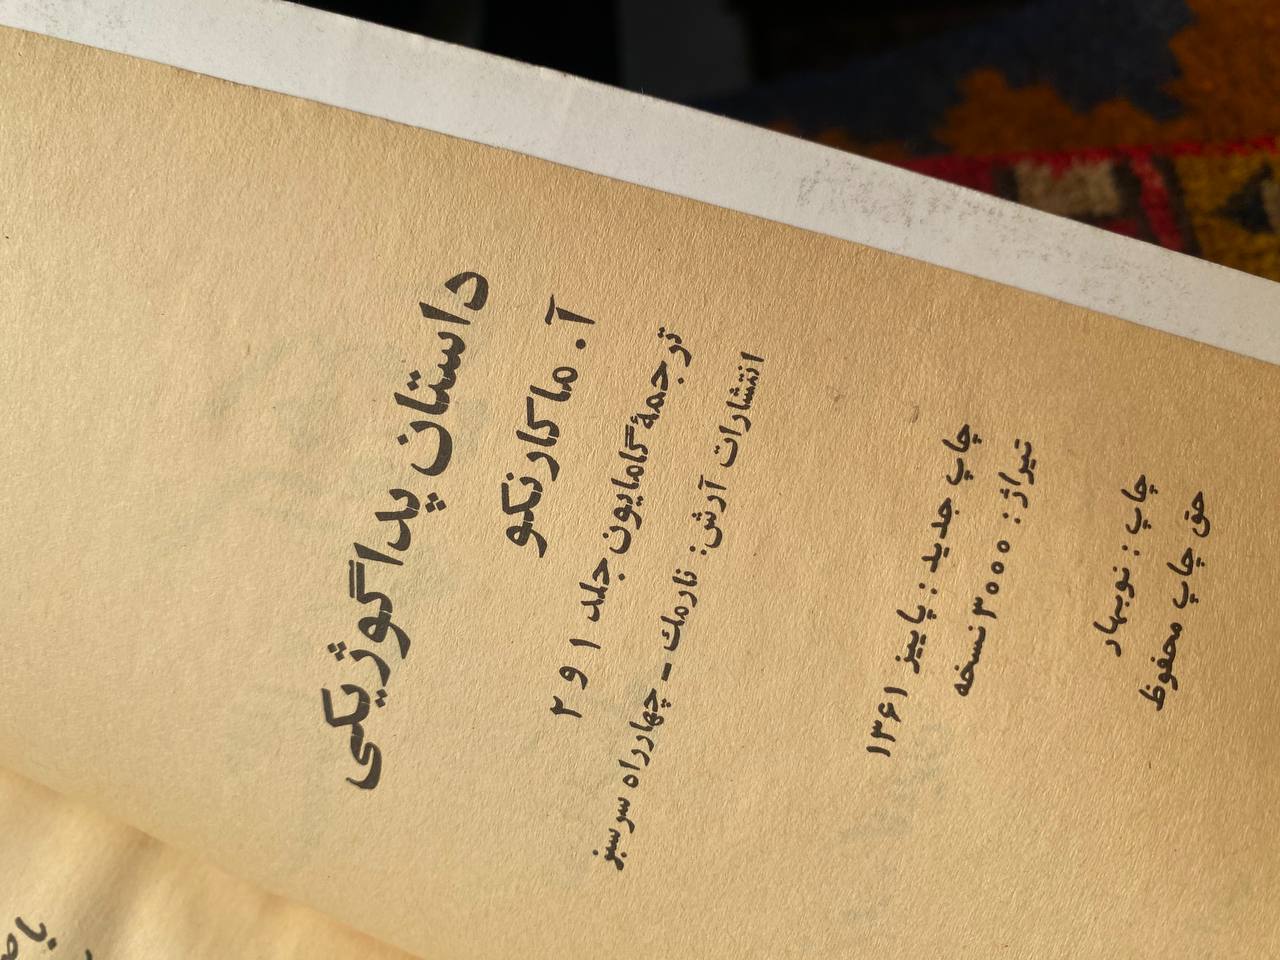 داستان پداگوژیکی
آ. ماکارنکو
ترجمهٔ گامایون جلد ۱ و ۲
انتشارات آرش: نارمك ـ چهارراه سرسبز
چاپ جدید: پاییز ۱۳۶۱
تیراژ: ۳۰۰۰ نسخه
چاپ: نوبهار
حق چاپ محفوظ